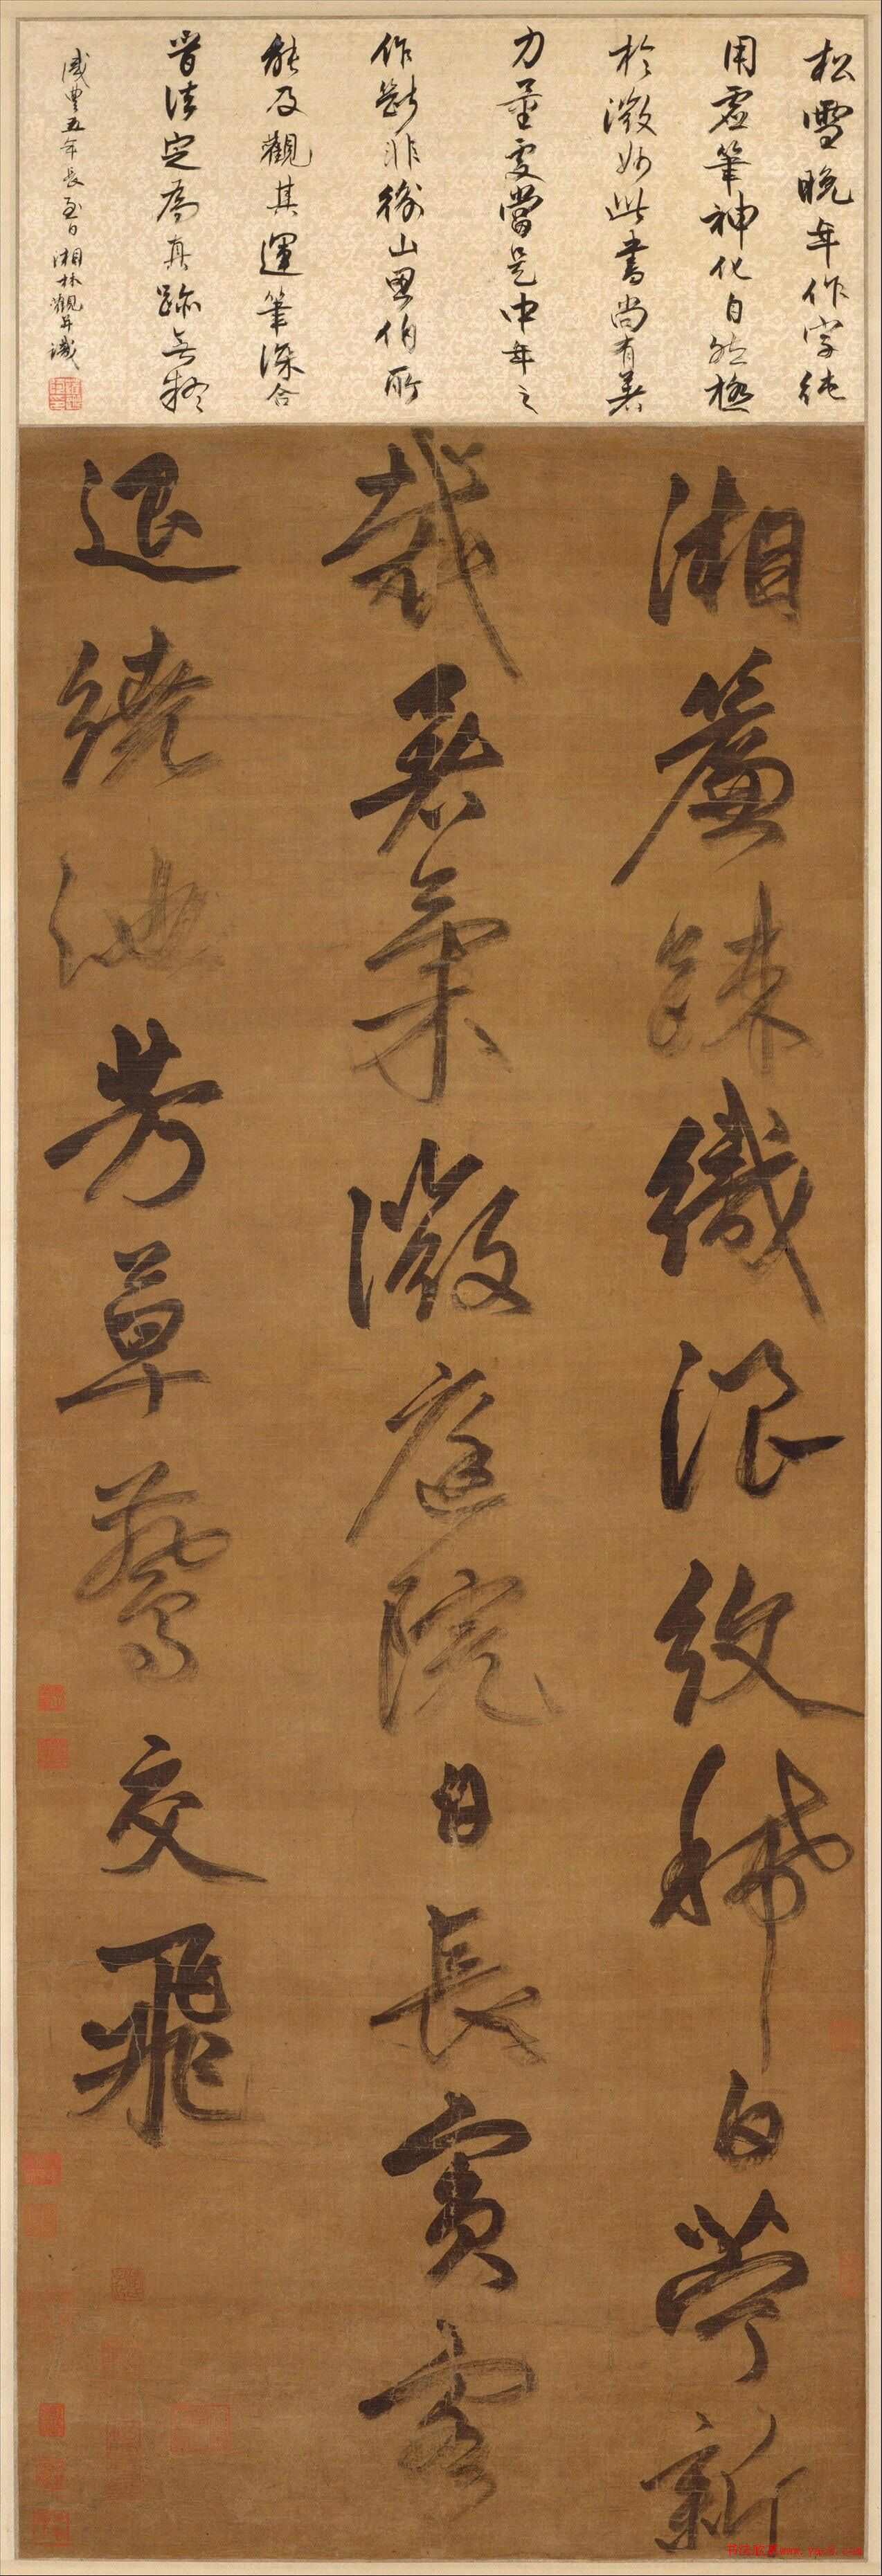 松雪晚年作字純
用虛筆神化自然極
於微妙此書尚有著
力量處當是中年之
作斷非衡山思伯所
能及觀其運筆深合
晉法定為真跡無疑
咸豐五年長至日湘林觀并識
湘簾疎織浪紋稀白苧新
裁暑氣微庭院日長賓客
退繞池芳草燕交飛